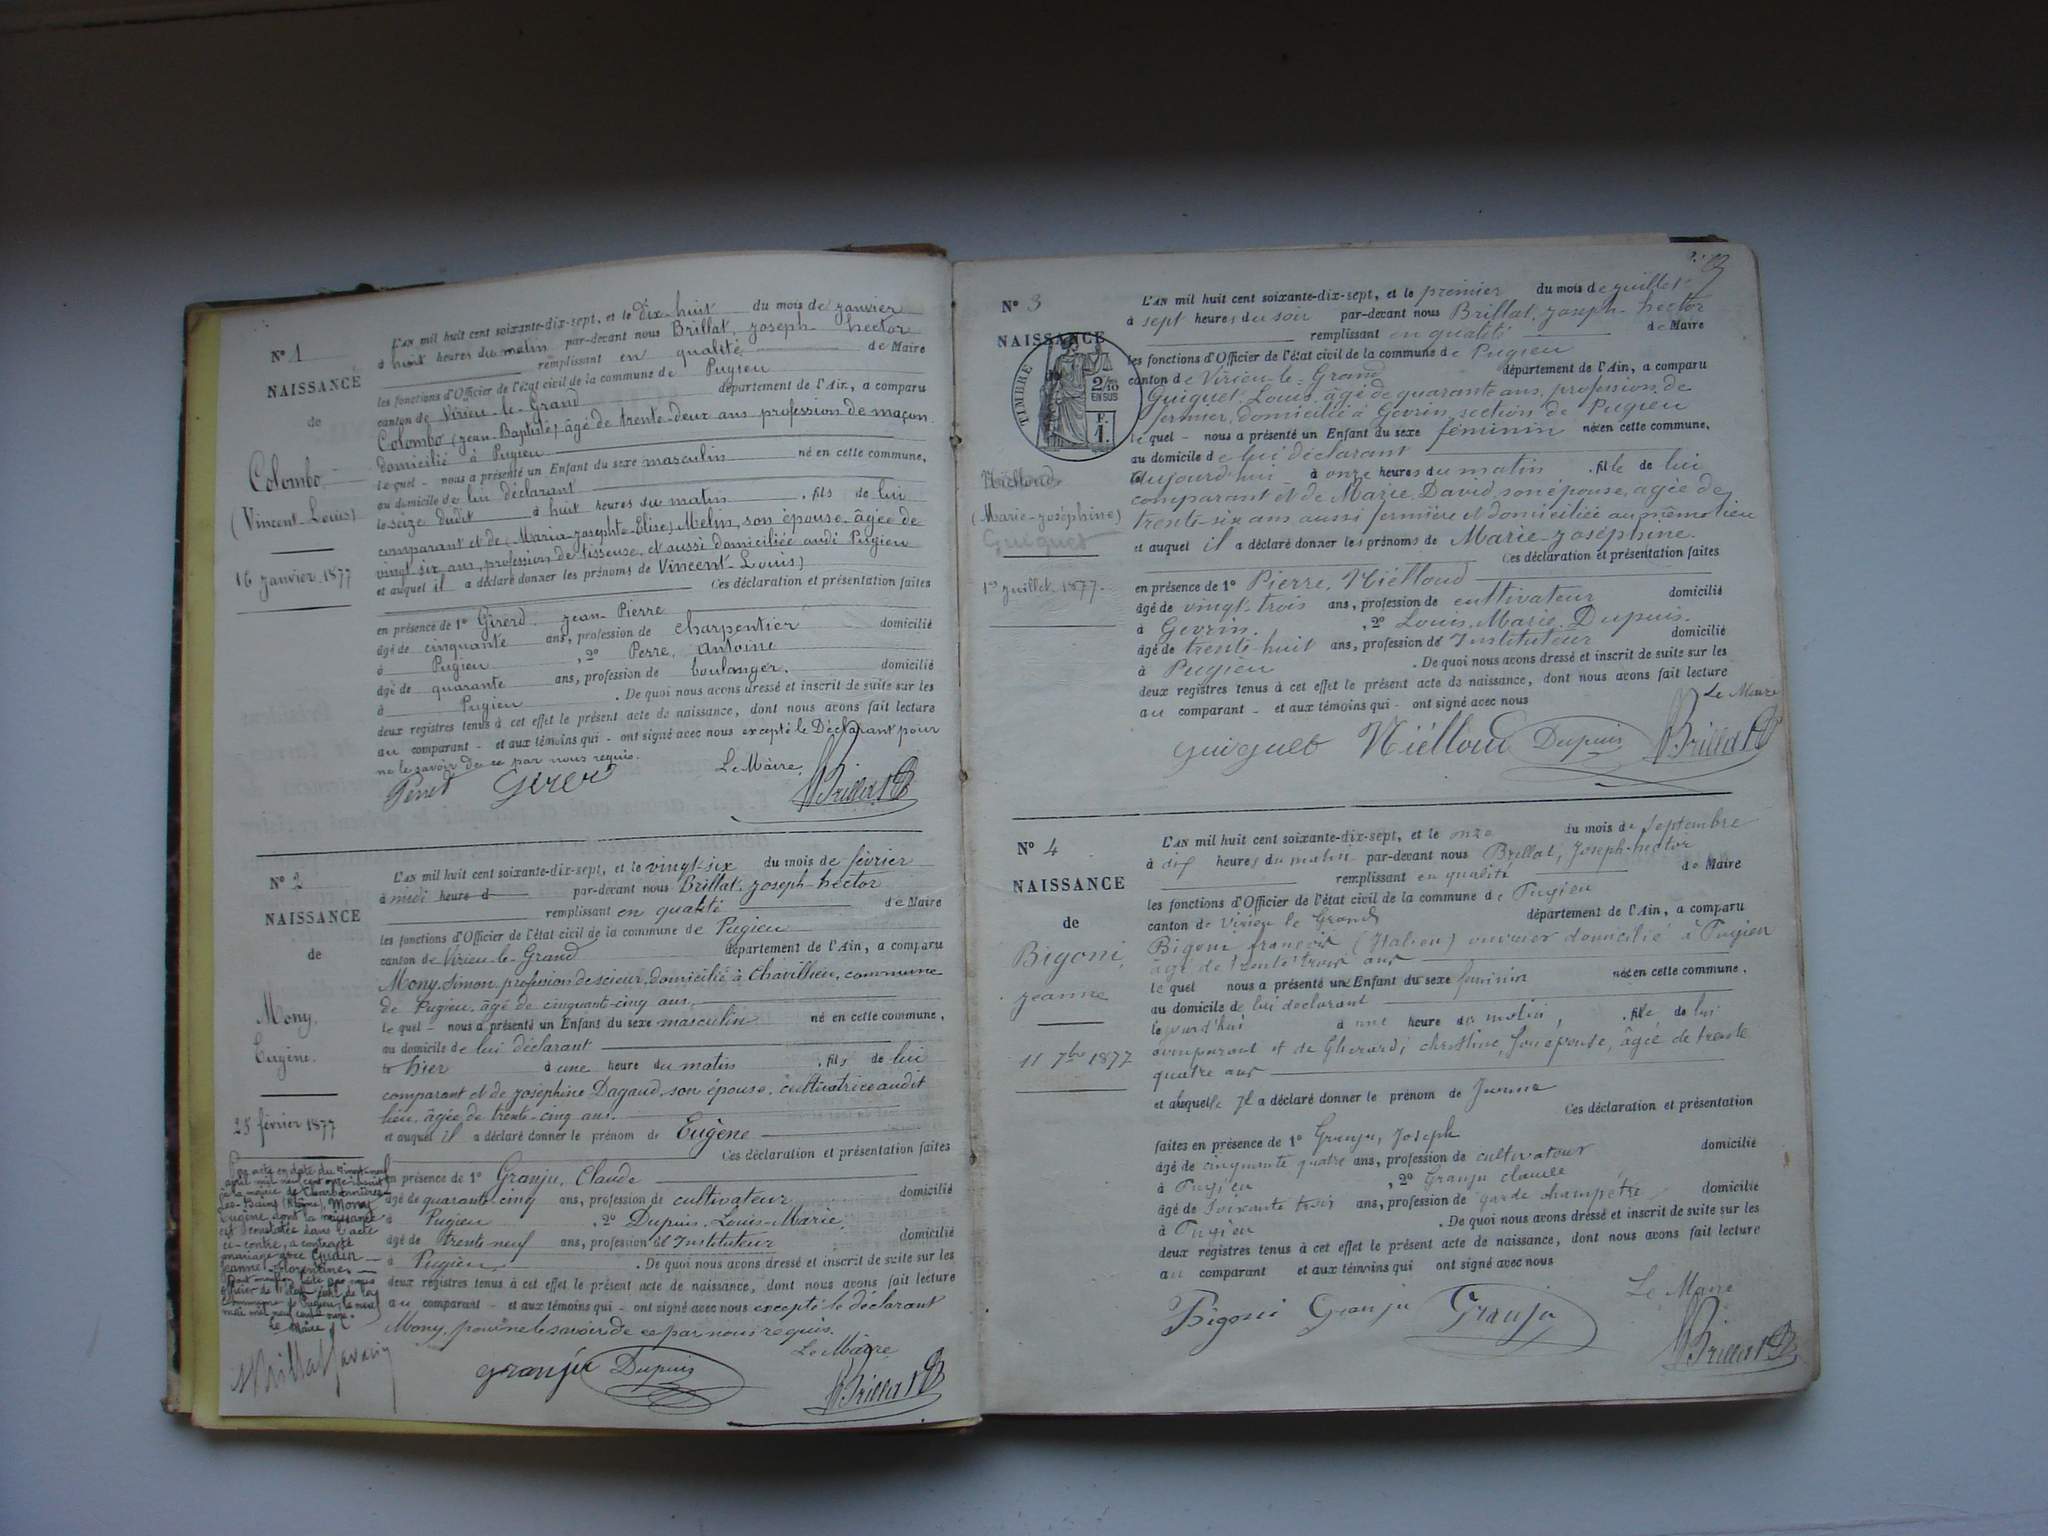 N° 1
NAISSANCE
de
Colombo
(Vincent-Louis)
16 janvier 1877
L'AN mil huit cent soixante-dix-sept, et le dix-huit du mois de janvier
à huit heures du matin par-devant nous Brillat, joseph-hector
remplissant en qualité de Maire
les fonctions d'Officier de l'état civil de la commune de Pugieu
canton de Virieu-le-Grand département de l'Ain, a comparu
Colombo (jean-Baptiste) âgé de trente-deux ans profession de maçon
domicilié à Pugieu
lequel - nous a présenté un Enfant du sexe masculin né en cette commune,
au domicile de lui déclarant
le seize dudit à huit heures du matin, fils de lui
comparant et de (Maria-josephte-Elise) Melin, son épouse, âgée de
vingt six ans, profession de tisseuse, et aussi domiciliée audi Pugieu
et auquel il a déclaré donner les prénoms de Vincent-Louis)
Ces déclaration et présentation faites
en présence de 1° Girerd jean-Pierre
âgé de cinquante ans, profession de charpentier domicilié
à Pugieu, 2° Perre, antoine
âgé de quarante ans, profession de boulanger, domicilié
à Pugieu. De quoi nous avons dressé et inscrit de suite sur les
deux registres tenus à cet effet le présent acte de naissance, dont nous avons fait lecture
au comparant - et aux témoins qui - ont signé avec nous excepté le Déclarant pour
ne le savoir de ce par nous requis.
Le Maire,
Girerd
Brillat
N° 2
NAISSANCE
de
Mony,
Eugène.
25 février 1877
L'AN mil huit cent soixante-dix-sept, et le vingt-six du mois de février
à midi heure d par-devant nous Brillat, joseph-hector
remplissant en qualité de Maire
les fonctions d'Officier de l'état civil de la commune de Pugieu
canton de Virieu-le-Grand département de l'Ain, a comparu
Mony, Simon, profession de scieur, domicilié à Chavillieu, commune
de Pugieu, âgé de cinquante-cinq ans,
lequel - nous a présenté un Enfant du sexe masculin né en cette commune,
au domicile de lui déclarant
hier à une heure du matin, fils de lui
comparant et de joséphine Dagaud, son épouse, cultivatrice audit
lieu, âgée de trente-cinq ans.
et auquel il a déclaré donner le prénom de Eugène
Ces déclaration et présentation faites
en présence de 1° Granju, Claude
âgé de quarante-cinq ans, profession de cultivateur domicilié
à Pugieu, 2° Dupuis, Louis-Marie,
âgé de trente neuf ans, profession d'Instituteur domicilié
à Pugieu. De quoi nous avons dressé et inscrit de suite sur les
deux registres tenus à cet effet le présent acte de naissance, dont nous avons fait lecture
au comparant - et aux témoins qui - ont signé avec nous excepté le déclarant
Mony, pour ne le savoir de ce par nous requis.
Le Maire
granju Dupuis Brillat
Par acte en date du vingt-neuf
avril mil neuf cent
à la mairie de Charbonnières
Les-Bains (Rhône), Mony
Eugène dont la naissance
est constatée dans l'acte
ci-contre, a contracté
mariage avec
jeanne-Florentine
Le Maire
Brillat Savarin
N° 3
NAISSANCE
TIMBRE
2/10
EN SUS
F.
1.
Niélloud
(Marie-joséphine)
Guiguet
1er juillet 1877.
L'AN mil huit cent soixante-dix-sept, et le premier du mois de juillet
à sept heures du soir par-devant nous Brillat, joseph-hector
remplissant en qualité de Maire
les fonctions d'Officier de l'état civil de la commune de Pugieu
canton de Virieu-le-Grand département de l'Ain, a comparu
Guiguet, Louis, âgé de quarante ans, profession de
fermier, domicilié à Gevrin, section de Pugieu
lequel - nous a présenté un Enfant du sexe féminin née en cette commune,
au domicile de lui déclarant
aujourd'hui à onze heures du matin, fille de lui
comparant et de Marie David, son épouse, agée de
trente-six ans aussi fermière et domiciliée au même lieu
et auquel il a déclaré donner les prénoms de Marie-joséphine.
Ces déclaration et présentation faites
en présence de 1° Pierre, Niélloud
âgé de vingt-trois ans, profession de cultivateur domicilié
à Gevrin, 2° Louis, Marie, Dupuis.
âgé de trente-huit ans, profession de Instituteur domicilié
à Pugieu. De quoi nous avons dressé et inscrit de suite sur les
deux registres tenus à cet effet le présent acte de naissance, dont nous avons fait lecture
au comparant - et aux témoins qui - ont signé avec nous
Le Maire
guiguet Niélloud Dupuis Brillat
N° 4
NAISSANCE
de
Bigoni,
jeanne
11 7bre 1877
L'AN mil huit cent soixante-dix-sept, et le onze du mois de Septembre
à dix heures du matin par-devant nous Brillat, Joseph-hector
remplissant en qualité de Maire
les fonctions d'Officier de l'état civil de la commune de Pugieu
canton de Virieu le Grand département de l'Ain, a comparu
Bigoni françois (Italien) ouvrier domicilié à Pugieu
âgé de trente trois ans
lequel nous a présenté une Enfant du sexe féminin née en cette commune,
au domicile de lui déclarant
le jourd'hui à une heure du matin, fille de lui
comparant et de Gherardi christine, son épouse, âgée de trente
quatre ans
et à laquelle Il a déclaré donner le prénom de Jeanne
Ces déclaration et présentation
faites en présence de 1° Granju, Joseph
âgé de cinquante quatre ans, profession de cultivateur domicilié
à Pugieu, 2° Granju claude
âgé de soixante trois ans, profession de garde champêtre domicilié
à Pugieu. De quoi nous avons dressé et inscrit de suite sur les
deux registres tenus à cet effet le présent acte de naissance, dont nous avons fait lecture
au comparant et aux témoins qui ont signé avec nous
Le Maire
Bigoni Granju Granju Brillat